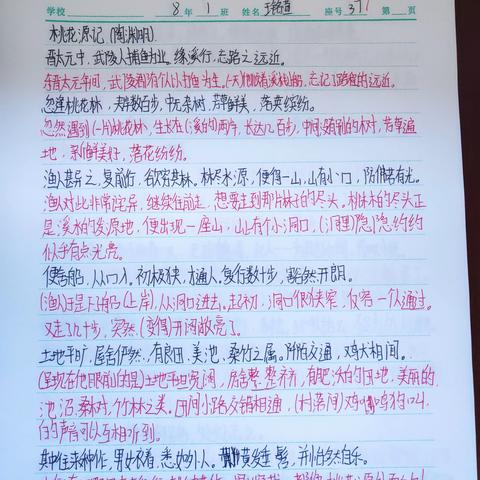 学校 8 年 1 班 姓名 座号 37 第 页
桃花源记 (陶渊明)
晋太元中,武陵人捕鱼为业。缘溪行,忘路之远近。
东晋太元年间,武陵郡有个人以打鱼为生。(一天)他顺着溪水行船,忘记了路程的远近。
忽逢桃花林,夹岸数百步,中无杂树,芳草鲜美,落英缤纷。
忽然遇到(一片)桃花林,生长在(溪的)两岸,长达几百步,中间没有别的树,芳草遍
地,新鲜美好,落花纷纷。
渔人甚异之,复前行,欲穷其林。林尽水源,便得一山,山有小口,仿佛若有光。
渔人对此非常诧异,继续往前走,想要走到那片林子的尽头。桃林的尽头正
是溪水的发源地,便出现一座山,山上有个小洞口,(洞里)隐隐约约
似乎有点光亮。
便舍船,从口入。初极狭,才通人。复行数十步,豁然开朗。
(渔人)于是下了船(上岸),从洞口进去。起初,洞口很狭窄,仅容一个人通过。
又走了几十步,突然(变得)开阔敞亮了。
土地平旷,屋舍俨然,有良田、美池、桑竹之属。阡陌交通,鸡犬相闻。
(呈现在他眼前的是)土地平坦宽阔,房舍整整齐齐,有肥沃的田地,美丽的
池沼,桑树,竹林之类。田间小路交错相通,(村落间)鸡鸣狗叫
的声音可以互相听到。
其中往来种作,男女衣着,悉如外人。黄发垂髫,并怡然自乐。